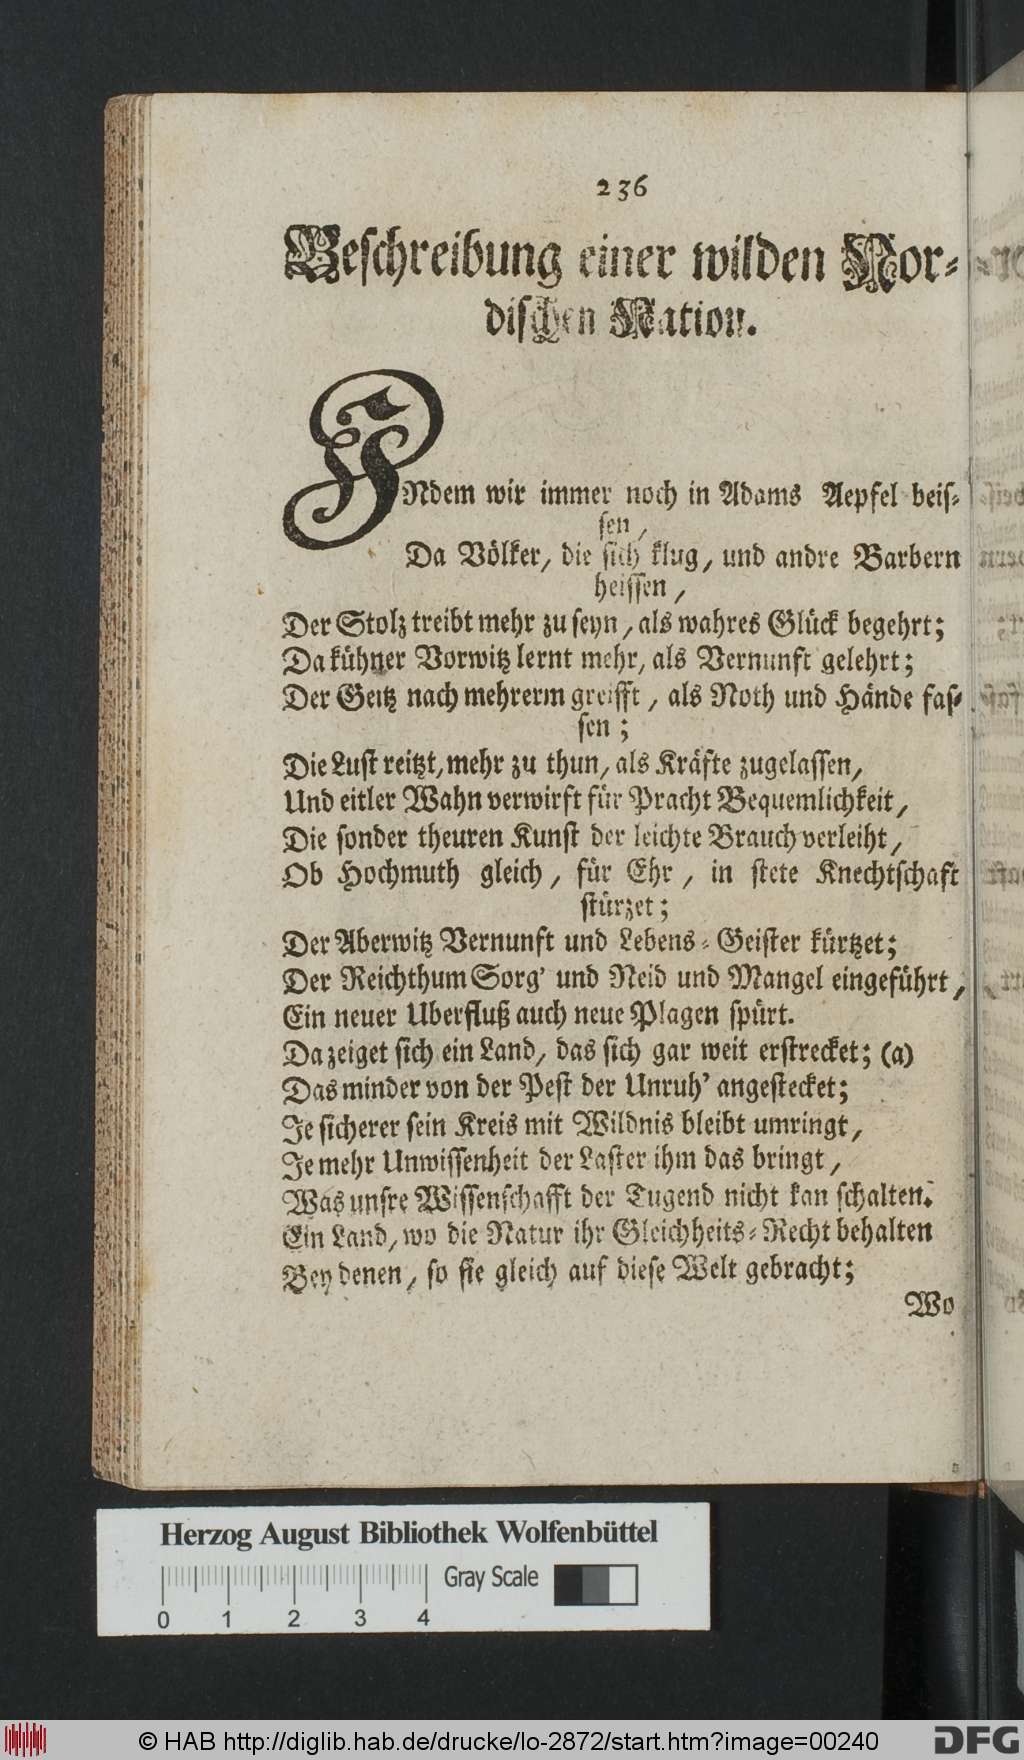 236
Beschreibung einer wilden Nor-
dischen Nation.
INdem wir immer noch in Adams Aepfel beis-
sen,
Da Völker, die sich klug, und andre Barbern
heissen,
Der Stolz treibt mehr zu seyn, als wahres Glück begehrt;
Da kühner Vorwitz lernt mehr, als Vernunft gelehrt;
Der Geitz nach mehrerm greifft, als Noth und Hände fas-
sen;
Die Lust reitzt, mehr zu thun, als Kräfte zugelassen,
Und eitler Wahn verwirft für Pracht Bequemlichkeit,
Die sonder theuren Kunst der leichte Brauch verleiht,
Ob Hochmuth gleich, für Ehr, in stete Knechtschaft
stürzet;
Der Aberwitz Vernunft und Lebens-Geister kürtzet;
Der Reichthum Sorg' und Neid und Mangel eingeführt,
Ein neuer Uberfluß auch neue Plagen spürt.
Da zeiget sich ein Land, das sich gar weit erstrecket; (a)
Das minder von der Pest der Unruh' angestecket;
Je sicherer sein Kreis mit Wildnis bleibt umringt,
Je mehr Unwissenheit der Laster ihm das bringt,
Was unsre Wissenschafft der Tugend nicht kan schalten.
Ein Land, wo die Natur ihr Gleichheits-Recht behalten
Bey denen, so sie gleich auf diese Welt gebracht;
Wo
Herzog August Bibliothek Wolfenbüttel
Gray Scale
0 1 2 3 4
© HAB http://diglib.hab.de/drucke/lo-2872/start.htm?image=00240
DFG